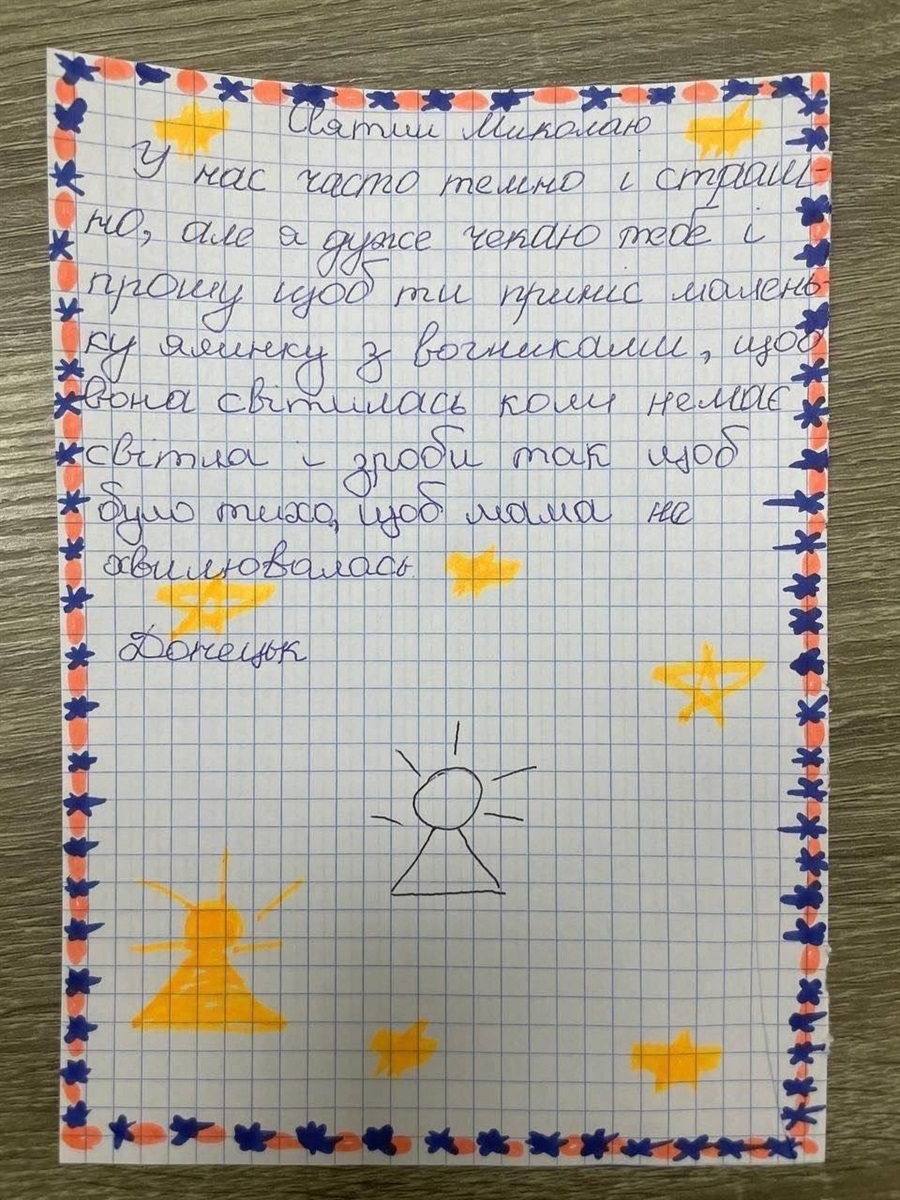 Святии Миколаю
У нас часто темно і страш-
но, але я дуже чекаю тебе і
прошу щоб ти приніс малень-
ку ялинку з вогниками, щоб
вона світилась коли немає
світла і зроби так щоб
було тихо, щоб мама не
хвилювалась
Донецьк